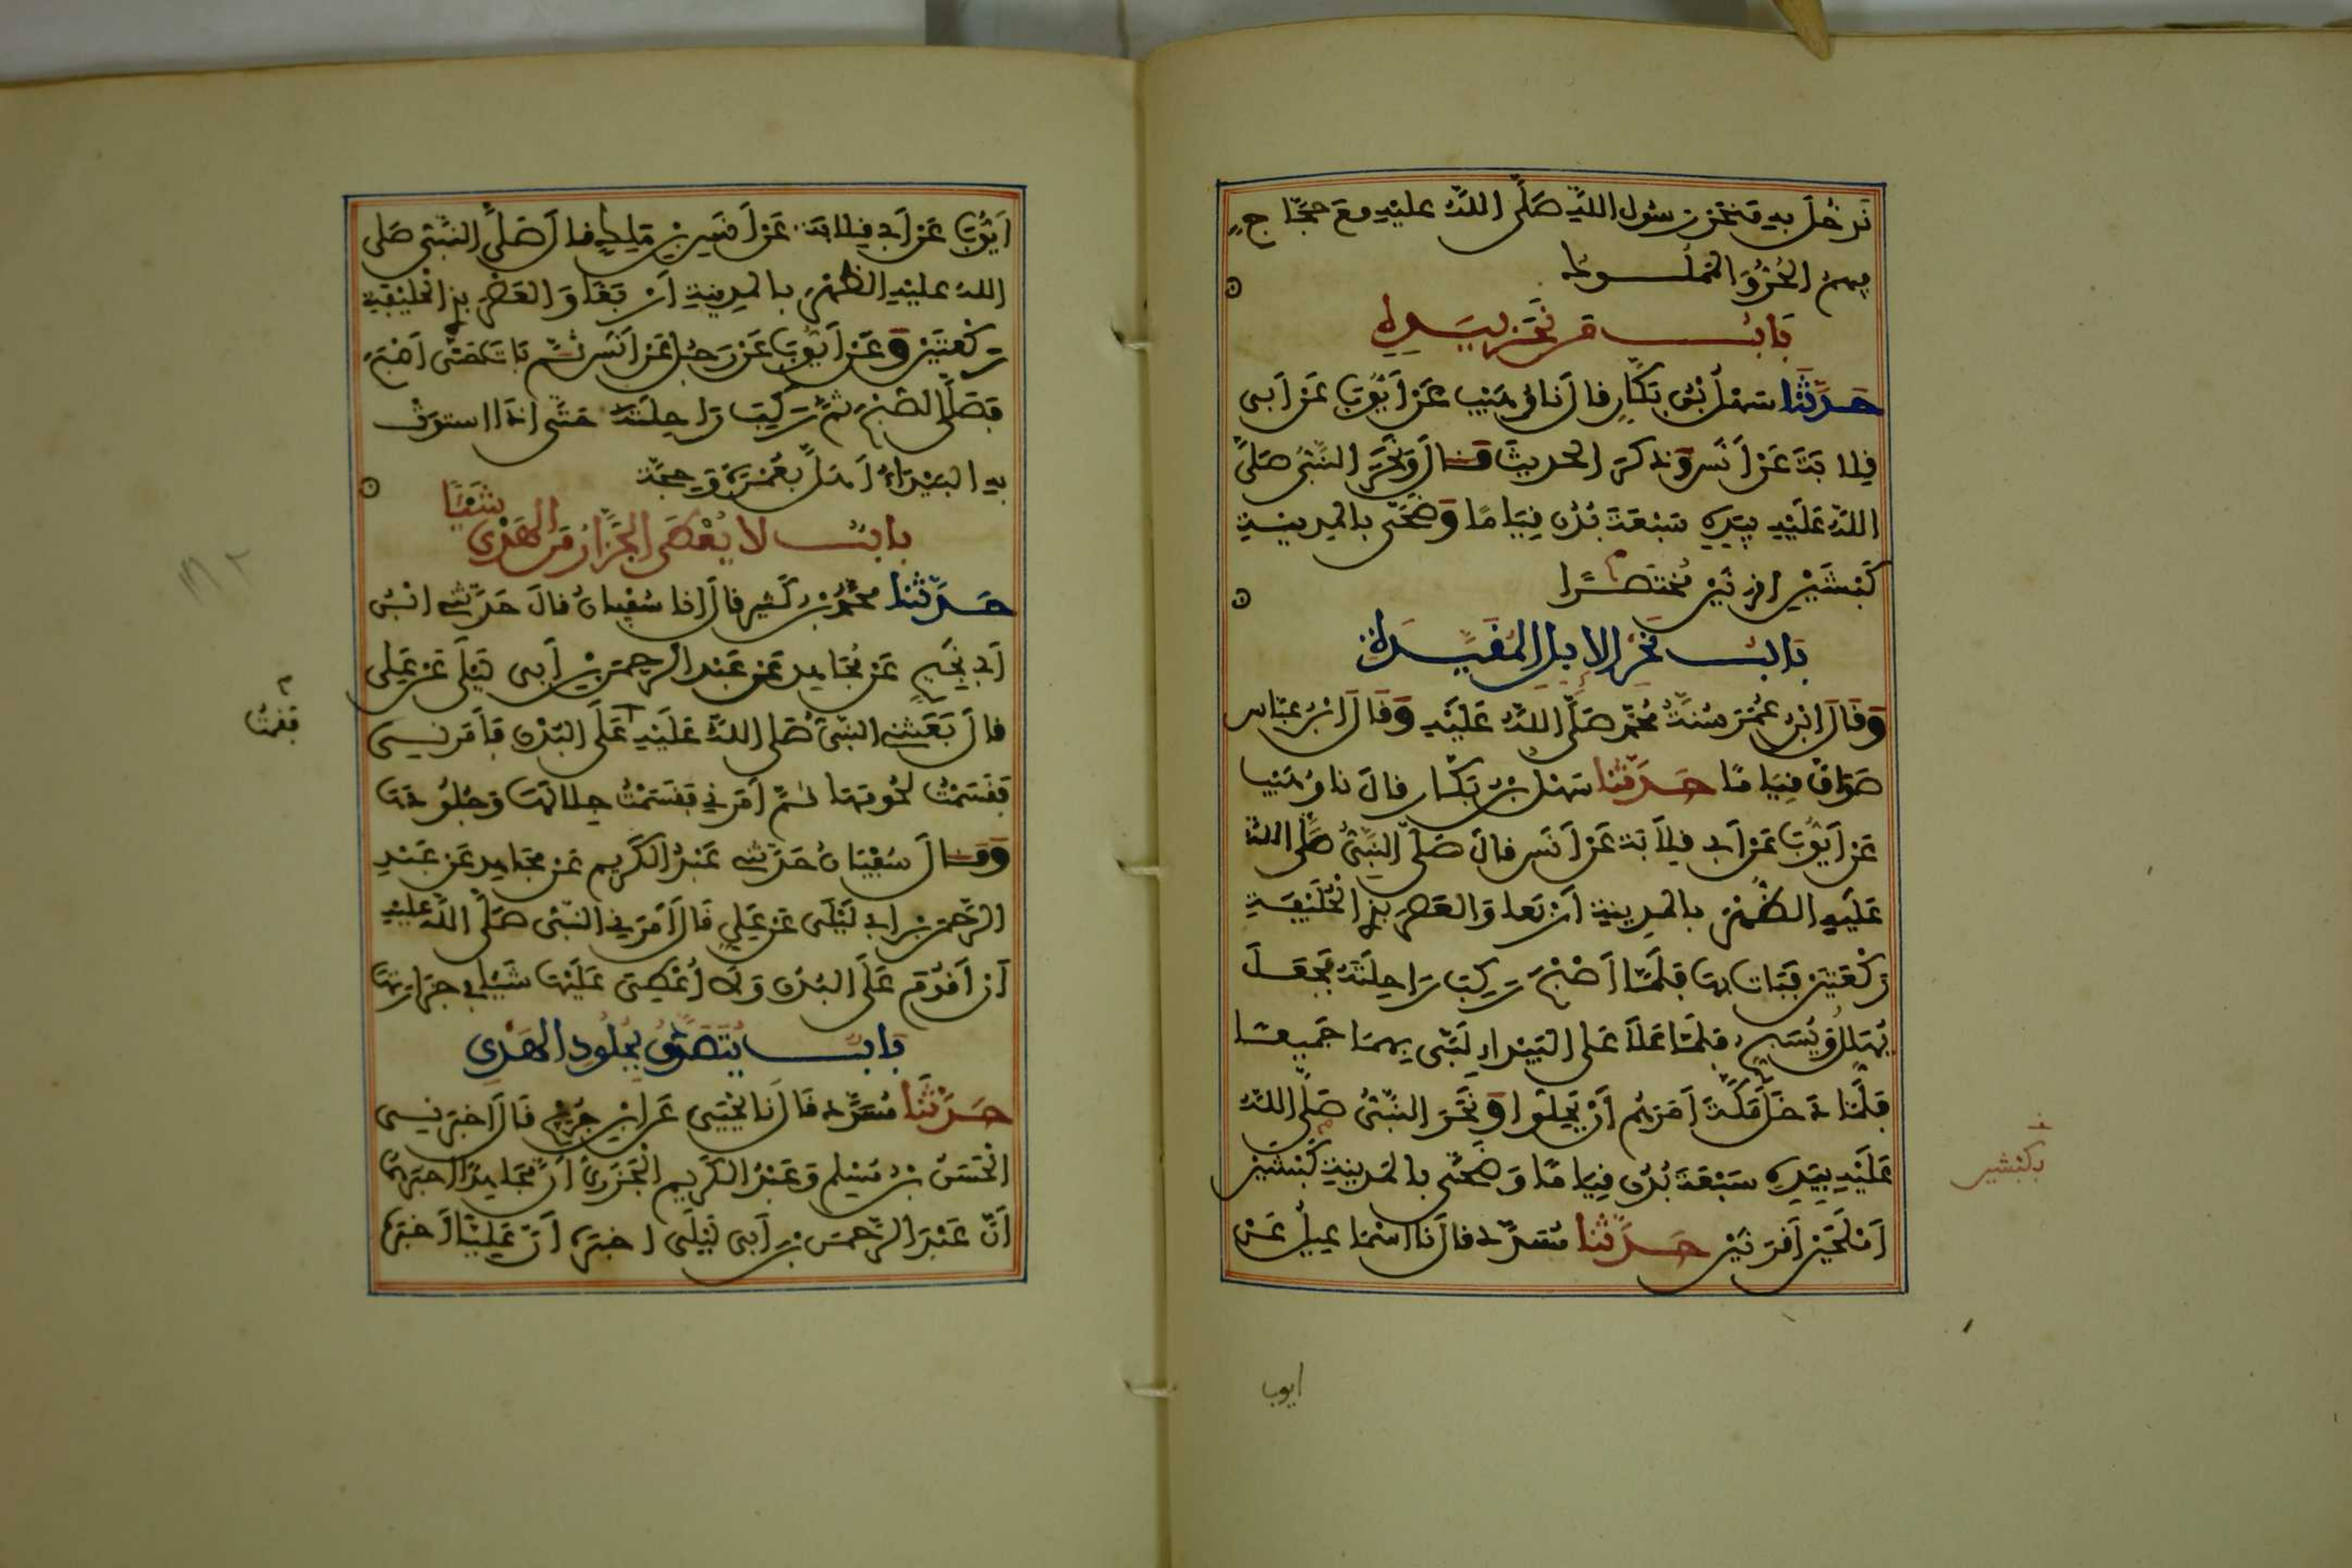 نَدخُلَ به مَنحر رسول اللّه صَلَّى اللّه عليه مع حُجّاجٍ
فيهم الحُرُّ والمملـــوك
بَابُ مَن نَحَرَ بِيَدِهِ
حَدَّثَنَا سَهْلُ بْنُ بَكَّارٍ قال نا وُهَيْب عَنْ أَيُّوبَ عَنْ أَبِى
قِلابَةَ عَنْ أَنَسٍ وذكرَ الحديثَ قــال وَنَحَرَ النَّبِيُّ صَلَّى
اللّه عَلَيْهِ بِيَدِهِ سَبْعَةَ بُدْنٍ قِيَامًا وَضَحَّى بالمدينـة
كَبْشَيْنِ أقرنَيْنِ مُخْتَصَرًا
بَابُ نَحْرِ الإبل المُقَيَّـدَة
وَقَالَ ابْنُ عُمَرَ سُنَّةُ مُحَمَّدٍ صَلَّى اللّه عَلَيْهِ وَقَالَ ابْنُ عبّاس
صَوَافَّ قِيَامًا حَدَّثَنَا سَهْلُ بْنُ بَكّـار قال نا وُهَيْب
عَنْ أَيُّوبَ عَنْ أبى قِلاَبَة عَنْ أَنَسٍ قالَ صَلَّى النَّبِيُّ صَلَّى اللّه
عَلَيهِ الظُّهْرَ بالمدينة أربعا وَالعَصرَ بذِى الْحُلَيْفَةِ
رَكْعَتَيْنِ فَبَات بها فَلَمَّا أَصْبَحَ رَكِبَ رَاحِلَتَهُ فجَعَلَ
يُهَلِّلُ وَيُسَبِّحُ فلمَّا عَلاَ على البَيْدَاءِ لَبَّى بِهِمَا جَمِيعًـا
فَلَمَّا دَخَلَ مَكَّةَ أَمَرَهُم أَنْ يَحِلُّوا وَنَحَرَ النَّبِيُّ صَلَّى اللّه
عَلَيْهِ بِيَدِهِ سَبْعَةَ بُدْنٍ قِيَامًا وَضَحَّى بالمَدِينةِ كَبْشَيْنِ
أَمْلَحَيْنِ أَقْرَنَيْنِ حَدَّثَنَا مُسَدَّد قال نا اسْمَاعِيلُ عَنْ
بكبشين
ايوب
أَيُّوبَ عَنْ أَبِى قِلابَةَ عَنْ أَنَسِ بْنِ مَلِكٍ قالَ صَلَّى النَّبِيّ صَلى
اللّه عليْهِ الظُّهْرَ بالمدينةِ أَرْبَعًا وَالعَصْرَ بذِى الْحُلَيْفَةِ
رَكْعَتَيْنِ وَعَنْ أَيُّوبَ عَنْ رَجُلٍ عَنْ أَنَسٍ ثُـمّ بَاتَ حَتَّى أَصْبَحَ
فَصَلَّى الصُّبْحَ ثُمَّ رَكِبَ رَاحِلَتَهُ حَتَّى إِذَا استوَتْ
به البَيْدَاءَ أَهَلَّ بعُمْرَةٍ وَحجَّة
بابُ لا يُعْطَى الجَزَّارُ مِنَ الهَدْىِ شَيْئًا
حَدَّثَنَا مُحَمَّدُ بْنُ كَثِير قالَ انا سُفْيانُ قالَ حَدَّثنى ابْنُ
أبى نجِيحٍ عَنْ مُجَاهِدٍ عَنْ عَبْدِ الرحمنِ بْنِ أَبِى لَيْلَى عَنْ عَلِى
قالَ بَعَثَنِى النَّبِىُّ صَلى اللّه عَلَيْهِ عَلَى البُدْنِ فَأَمَرَنِـى
فَقَسَمْتُ لُحُومَهَا ثُـمّ أَمَرَنِى فَقَسَمْتُ جِلالَهَا وَجُلُودَهَا
وَقــالَ سُفْيَانُ حَدَّثنى عَبْدُ الكَرِيمِ عَنْ مُجَاهِدٍ عَنْ عَبْدِ
الرَّحْمن بْنِ أبى لَيْلَى عَنْ عَلِيٍّ قَالَ أَمَرَنِى النَّبِيُّ صَلَّى اللّه عليْهِ
أَنْ أَقُومَ عَلَى البُدْنِ وَلا أُعْطِىَ عَلَيْهَا شَيْئًا فى جِزَارَتِهَا
بَابُ يُتَصَدَّقُ بِجُلُودِ الهَدْىِ
حَدَّثَنَا مُسَدَّد قَالَ نَا يَحْيَى عَنِ ابْنِ جُرَيْجٍ قَالَ أخبَرنـى
الْحَسَنُ بْنُ مُسْلِمٍ وَعَبْدُ الكَرِيمِ الْجَزَرِيُّ أَنَّ مُجَاهِدًا أخبَرَهُمَا
أَنَّ عَبْدَ الرَّحْمنِ بْنَ أَبِى لَيْلَى أخبَرَهُ أَنَّ عَلِيًّا أَخْبَرَهُ
فقمتُ